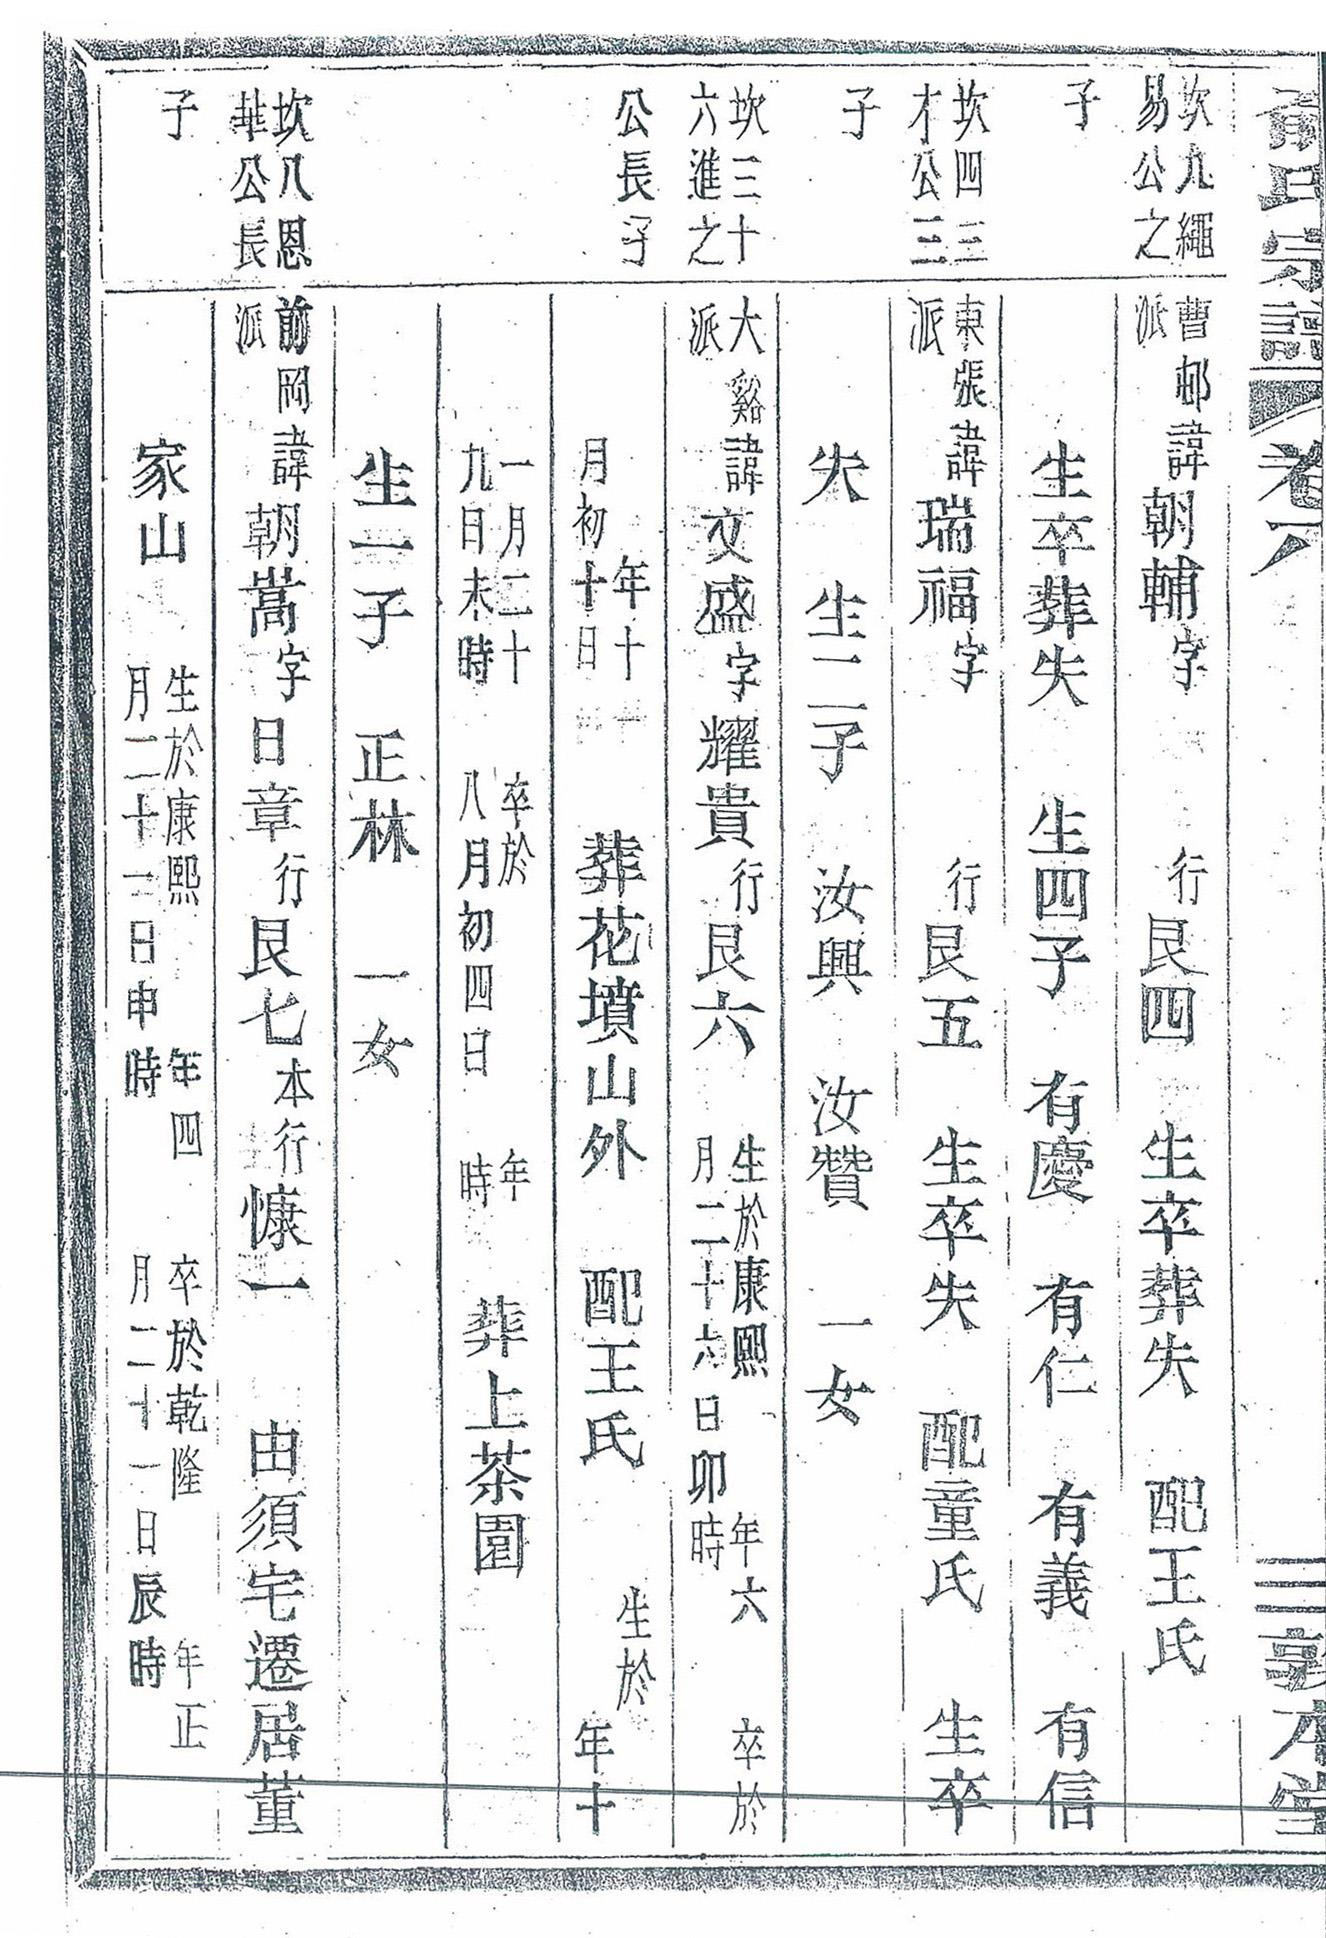 俞氏宗譜 卷八 三 敦本堂
坎九繩
易公之
子
曹邨派 諱朝輔字 行艮四 生卒葬失 配王氏
生卒葬失 生四子 有慶 有仁 有義 有信
坎四三
才公三
子
東張派 諱瑞福字 行艮五 生卒失 配童氏 生卒
失 生二子 汝興 汝贊 一女
坎三十
六進之
公長子
大谿派 諱文盛字耀貴行艮六 生於康熙 年六
月二十六日卯時 卒於
年十
月初十日 葬花墳山外 配王氏 生於 年十
一月二十
九日未時 卒於 年
八月初四日 時 葬上茶園
生一子 正林 一女
坎八恩
華公長
子
前岡派 諱朝嵩字日章行艮七本行慷一 由須宅遷居董
家山 生於康熙 年四
月二十一日申時 卒於乾隆 年正
月二十一日辰時